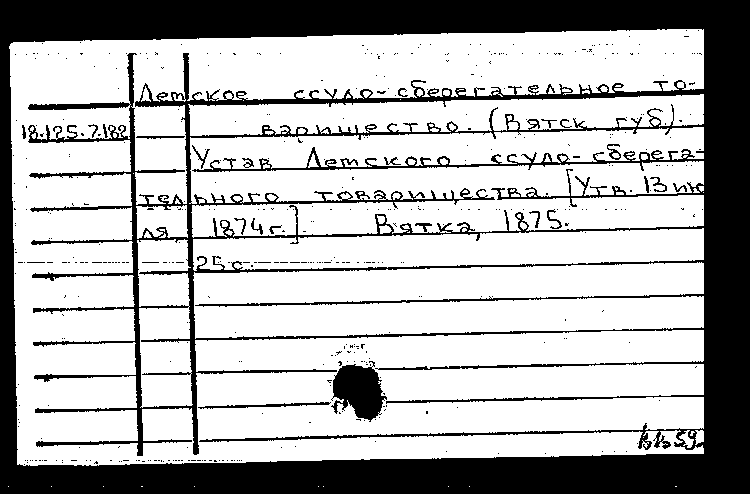 Летское ссудо-сберегательное то-
18.125.7.182 варищество. (Вятск. губ).
Устав Летского ссудо-сберега-
тельного товарищества. [Утв. 13 ию
ля 1874 г.] Вятка, 1875.
25 с.